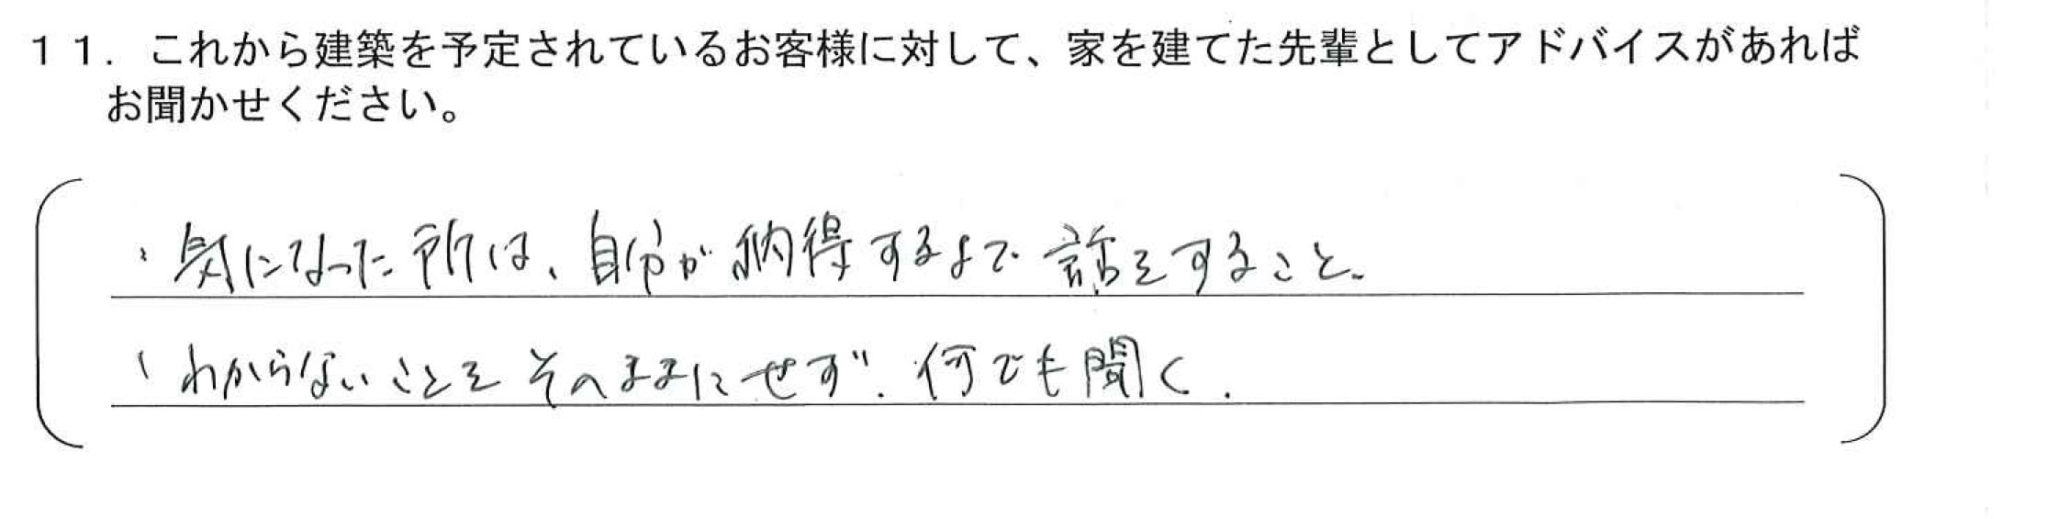 １１．これから建築を予定されているお客様に対して、家を建てた先輩としてアドバイスがあれば
お聞かせください。
・気になった所は、自分が納得するまで話をすること。
・わからないことをそのままにせず、何でも聞く.